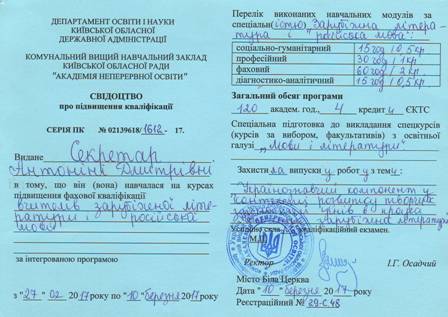 ДЕПАРТАМЕНТ ОСВІТИ І НАУКИ
КИЇВСЬКОЇ ОБЛАСНОЇ
ДЕРЖАВНОЇ АДМІНІСТРАЦІЇ
КОМУНАЛЬНИЙ ВИЩИЙ НАВЧАЛЬНИЙ ЗАКЛАД
КИЇВСЬКОЇ ОБЛАСНОЇ РАДИ
"АКАДЕМІЯ НЕПЕРЕРВНОЇ ОСВІТИ"
СВІДОЦТВО
про підвищення кваліфікації
СЕРІЯ ПК № 02139618/1612 - 17.
Видане Секретар
Антоніні Дмитрівні
в тому, що він (вона) навчалася на курсах
підвищення фахової кваліфікації
вчителів зарубіжної літе-
ратури і російська
мови
за інтегрованою програмою
з "27" 02 2017 року по "10" березня 2017 року
Перелік виконаних навчальних модулів за
спеціальністю "Зарубіжна літера-
тура і російська мова":
соціально-гуманітарний 15 год / 0,5 кр.
професійний 30 год / 1 кр.
фаховий 60 год / 2 кр.
діагностико-аналітичний 15 год / 0,5 кр.
Загальний обсяг програми
120 академ. год., 4 кредит и ЄКТС
Спеціальна підготовка до викладання спецкурсів
(курсів за вибором, факультативів) з освітньої
галузі "Мови і літератури"
Захистила випускну роботу з теми:
"Українознавчий компонент у
контексті розвитку творчих
учнів в процесі
зарубіжної літератури
Успішно кваліфікаційний екзамен.
М.П.
Ректор І.Г. Осадчий
Місто Біла Церква
Дата "10" березня 2017 року
Реєстраційний № 39-С.48